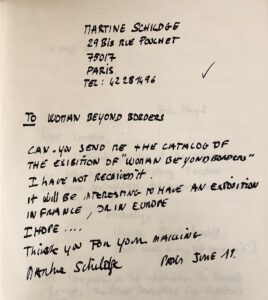 MARTINE SCHILDGE
29 Bis RUE POUCHET
75017
PARIS
TEL: 42281496
TO WOMAN BEYOND BORDERS
CAN-YOU SEND ME THE CATALOG OF
THE EXIBITION OF "WOMAN BEYOND BORDERS"
I HAVE NOT RECEIVED IT.
IT WILL BE INTERESTING TO HAVE AN EXPOSITION
IN FRANCE, OR IN EUROPE
I HOPE ....
THANK YOU FOR YOUR MAILING
Martine Schildge Paris JUNE 11.